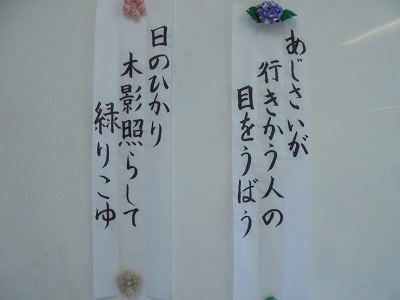 あじさいが
行きかう人の
目をうばう
日のひかり
木影照らして
緑りこゆ